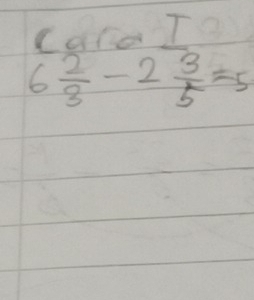 Cara I
6 2/3 - 2 3/5 = 5